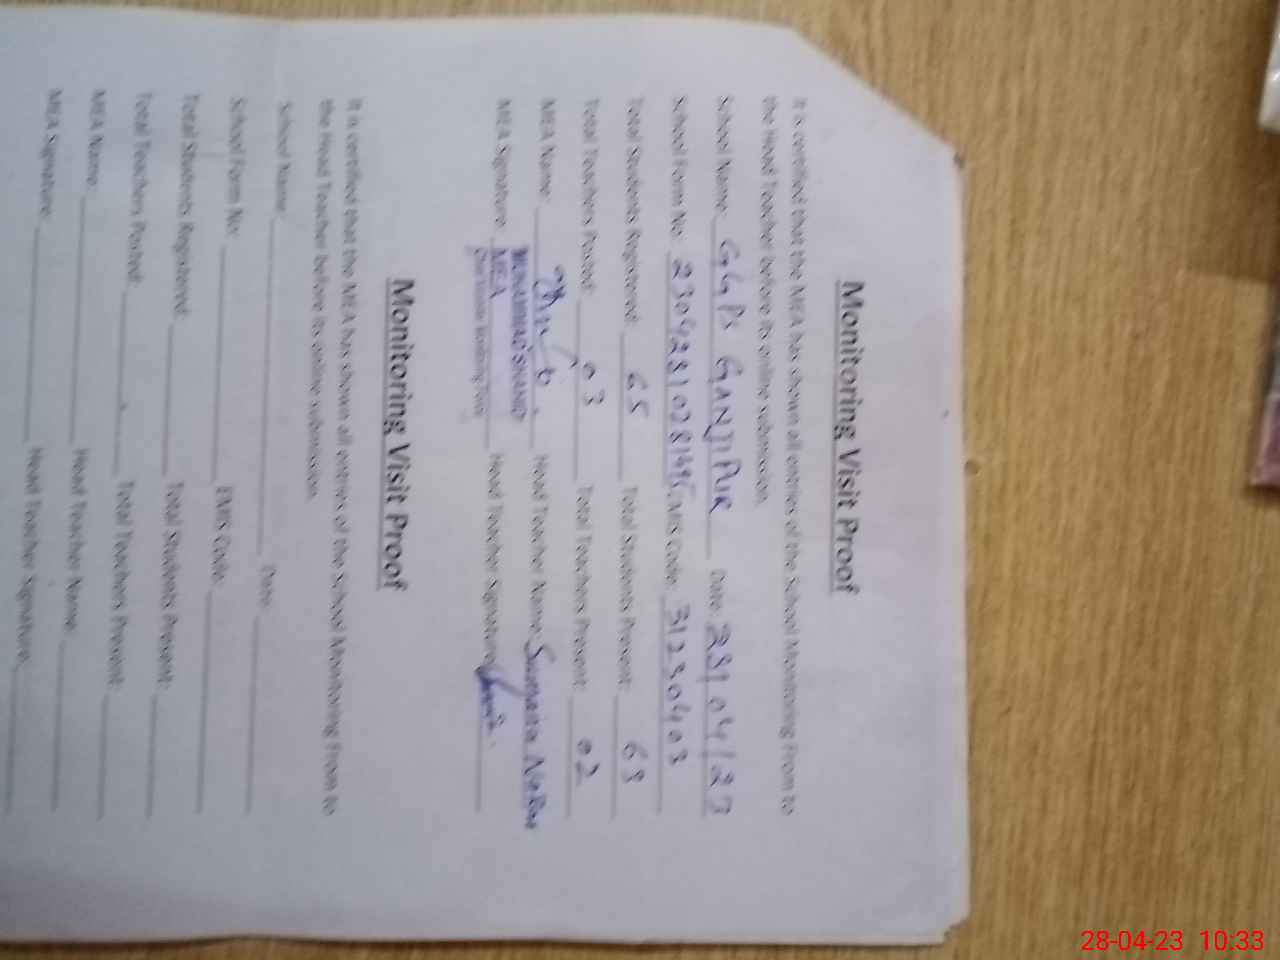 Monitoring Visit Proof
It is certified that the MEA has shown all entries of the School Monitoring From to
the Head Teacher before its online submission.
School Name: GGPS GANJIPUR Date: 28/04/23
School Form No: EMIS Code: 31230403
Total Students Registered: 65 Total Students Present: 63
Total Teachers Posted: 03 Total Teachers Present: 02
MEA Name: Head Teacher Name: Sumaira
MUHAMMAD SHAHID
MEA Signature: MEA Head Teacher Signature:
Monitoring Visit Proof
It is certified that the MEA has shown all entries of the School Monitoring From to
the Head Teacher before its online submission.
School Name: Date:
School Form No: EMIS Code:
Total Students Registered: Total Students Present:
Total Teachers Posted: Total Teachers Present:
MEA Name: Head Teacher Name:
MEA Signature: Head Teacher Signature:
28-04-23 10:33